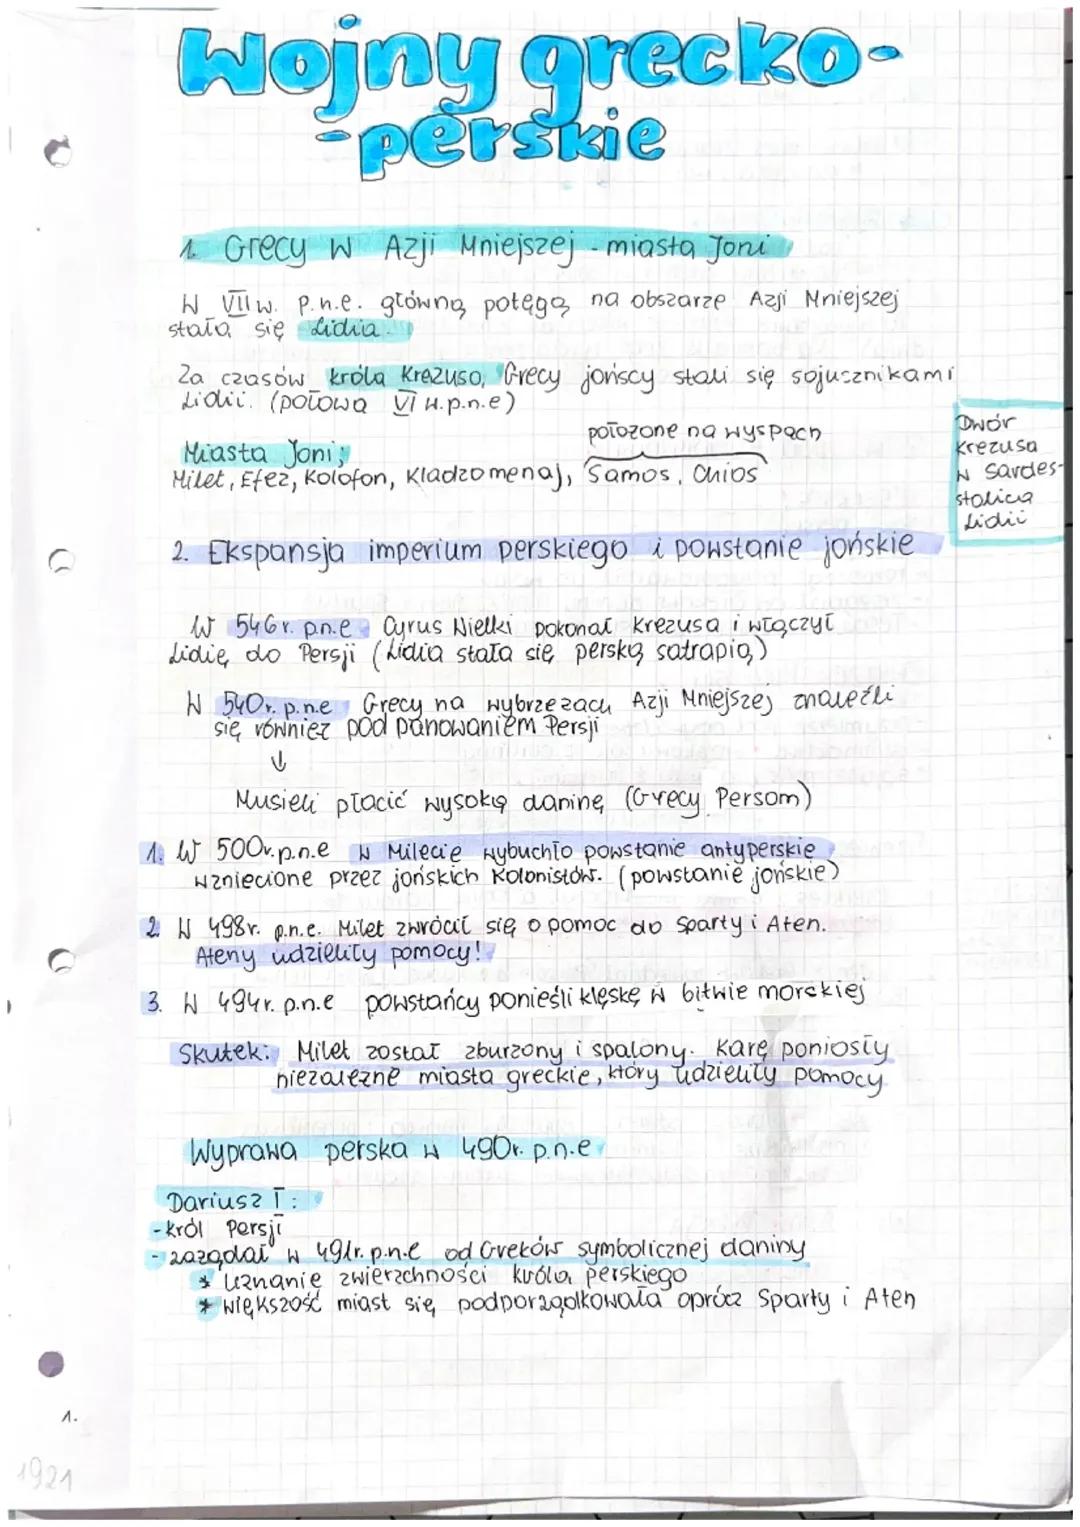 Wojny grecko-
-perskie
1. Grecy w Azji Mniejszej - miasta Joni
W VII w. p.n.e. główną potęgą na obszarze Azji Mniejszej
stała się Lidia.
Za czasów króla Krezusa, Grecy jońscy stali się sojusznikami
Lidii. (połowa VI w.p.n.e)
położone na wyspach
Miasta Joni;
Milet, Efez, Kolofon, Kladzomenaj, Samos, Chios
Dwór
Krezusa
w Sardes-
stolica
Lidii
2. Ekspansja imperium perskiego i powstanie jońskie
W 546r. p.n.e Cyrus Wielki pokonał Krezusa i włączył
Lidię do Persji (Lidia stała się perską satrapią)
W 540r. p.n.e Grecy na wybrzeżach Azji Mniejszej znaleźli
się również pod panowaniem Persji
↓
Musieli płacić wysoką daninę (Grecy Persom)
1. W 500r.p.n.e w Milecie wybuchło powstanie antyperskie
wzniecione przez jońskich kolonistów. (powstanie jońskie)
2. W 498r. p.n.e. Milet zwrócił się o pomoc do Sparty i Aten.
Ateny udzieliły pomocy!
3. W 494r. p.n.e powstańcy ponieśli klęskę w bitwie morskiej
Skutek: Milet został zburzony i spalony. Karę poniosły
niezależne miasta greckie, który udzieliły pomocy
Wyprawa perska w 490r. p.n.e
Dariusz I:
-król Persji
- zażądał w 491r.p.n.e od Greków symbolicznej daniny
* Uznanie zwierzchności króla perskiego
* większość miast się podporządkowała oprócz Sparty i Aten
1.
1921